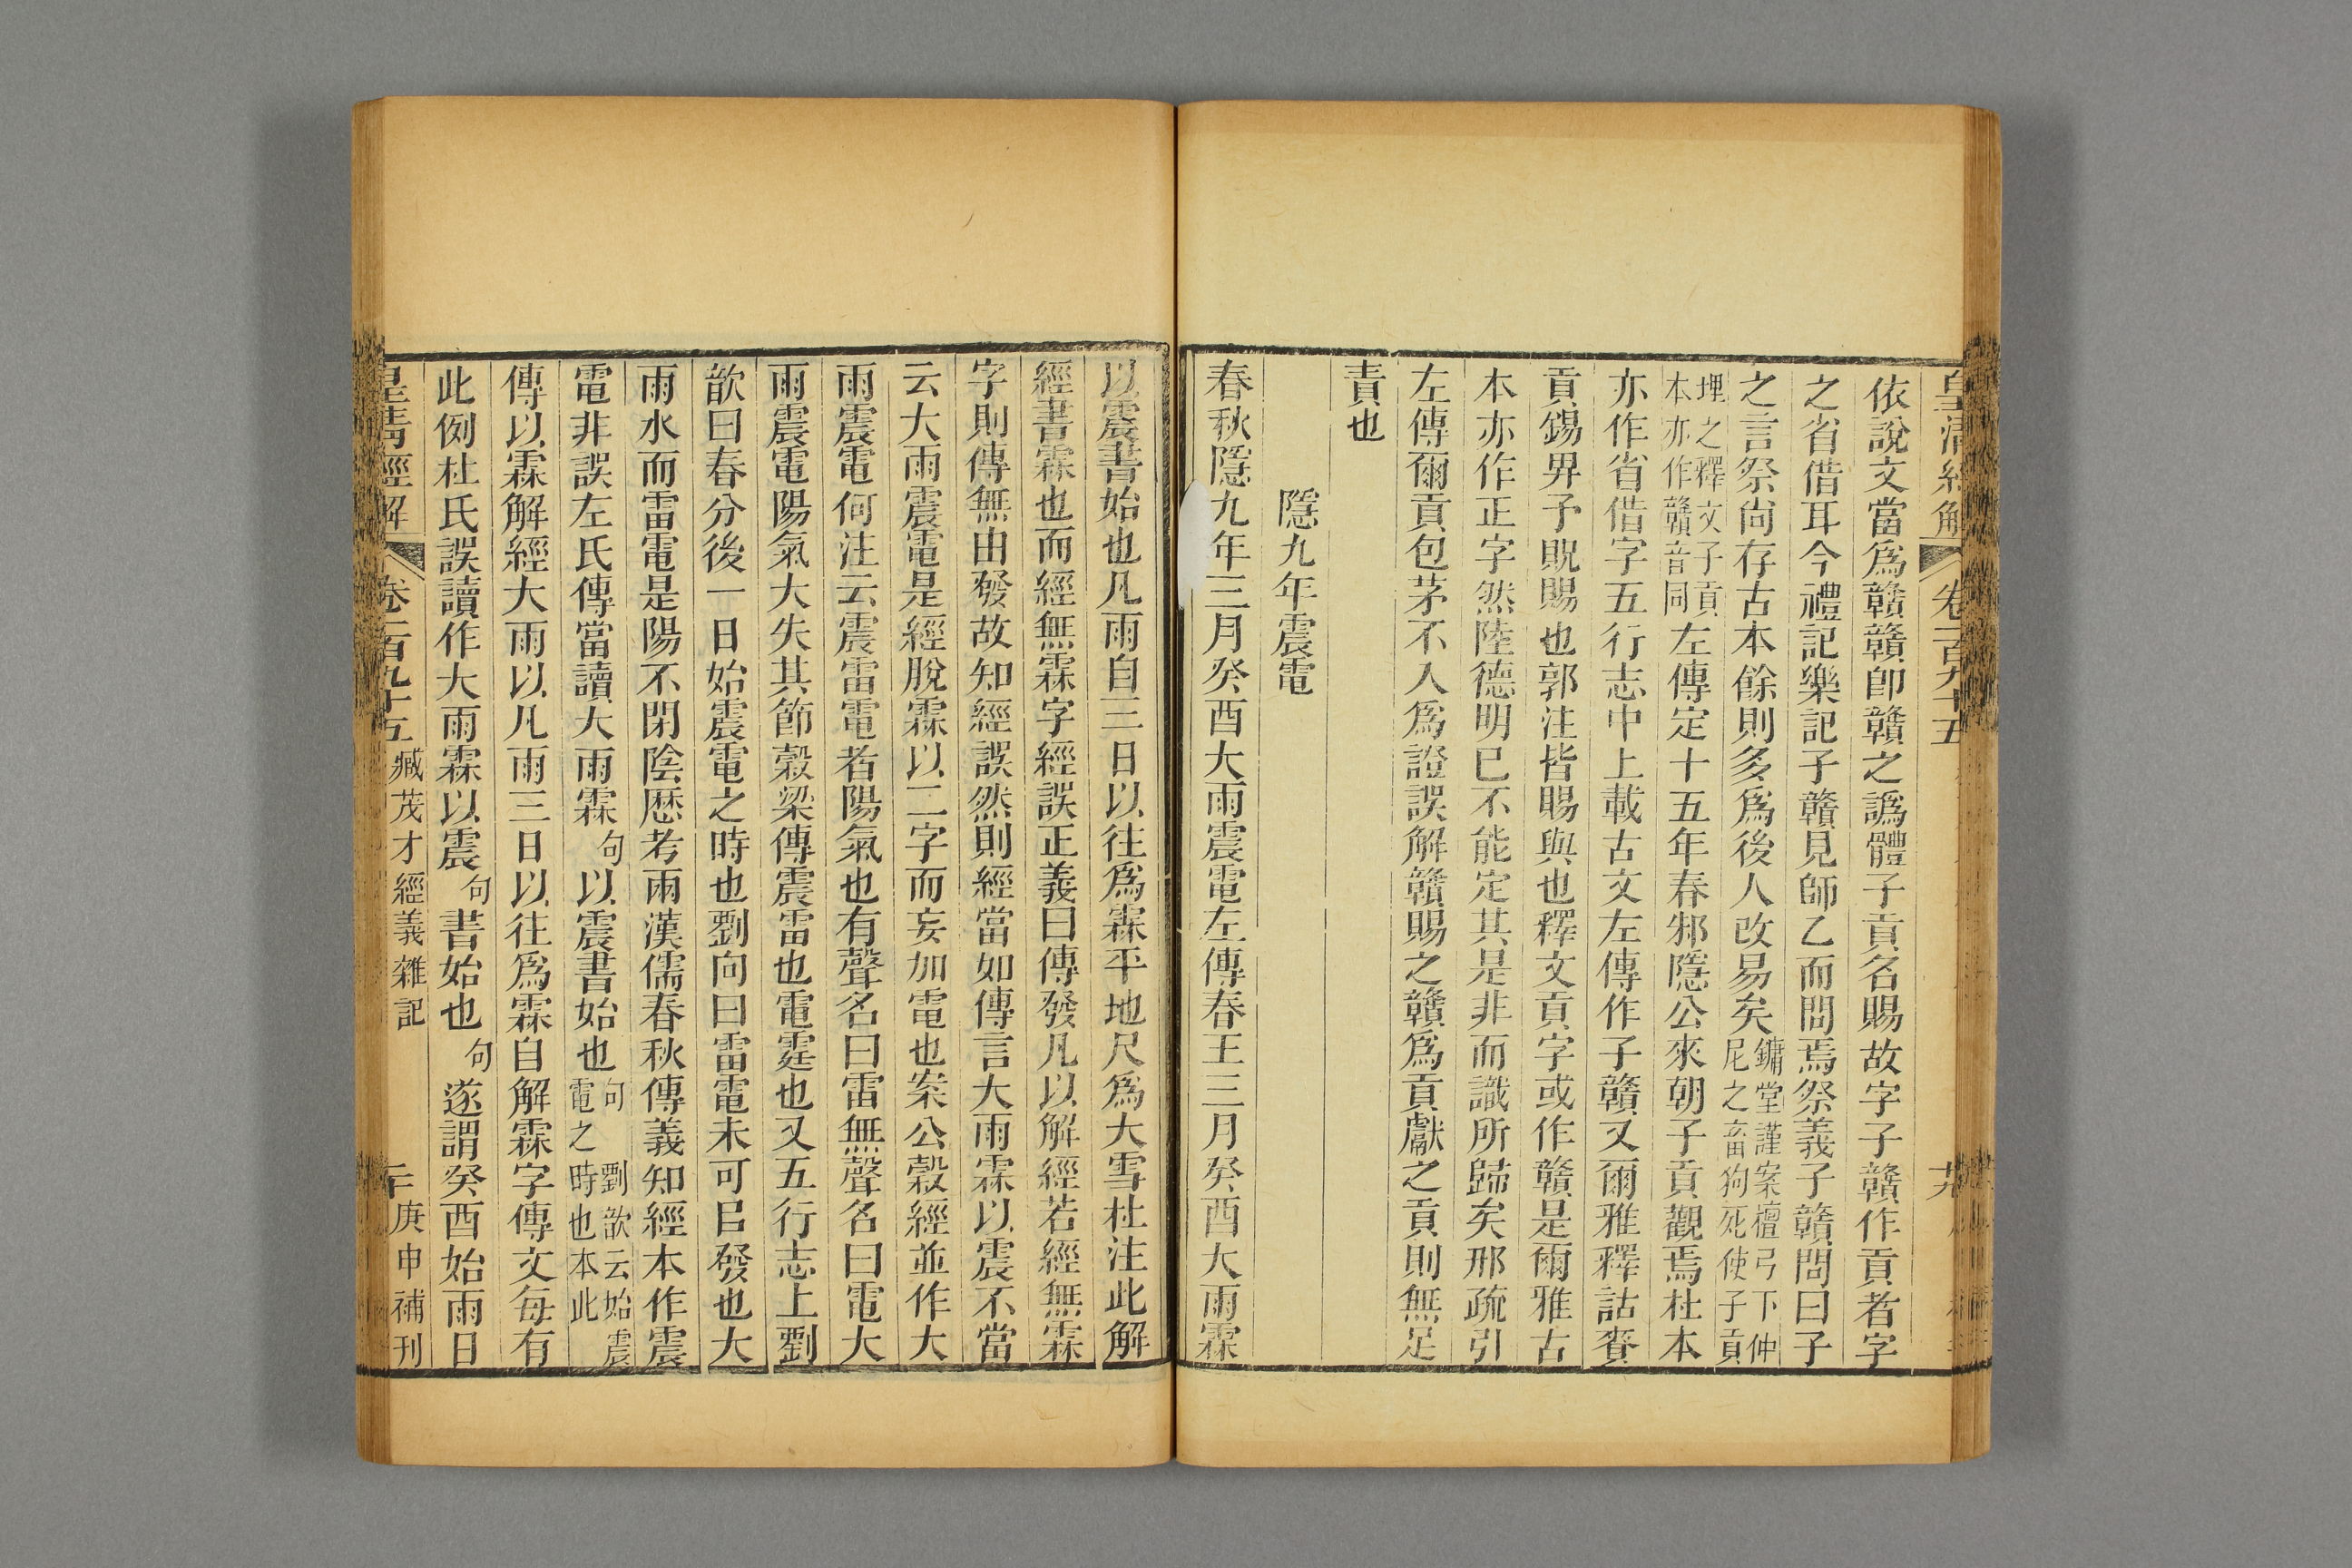 皇清經解 卷一百九十五 十九
依說文當爲贛贛卽贛之譌體子貢名賜故字子贛作貢者字
之省借耳今禮記樂記子贛見師乙而問焉祭義子贛問曰子
之言祭尙存古本餘則多爲後人改易矣鏞堂謹案檀弓下仲尼之畜狗死使子貢
埋之釋文子貢本亦作贛音同左傳定十五年春邾隱公來朝子貢觀焉杜本
亦作省借字五行志中上載古文左傳作子贛又爾雅釋詁賚
貢錫畀予貺賜也郭注皆賜與也釋文貢字或作贛是爾雅古
本亦作正字然陸德明已不能定其是非而識所歸矣邢疏引
左傳爾貢包茅不入爲證誤解贛賜之贛爲貢獻之貢則無足
責也
隱九年震電
春秋隱九年三月癸酉大雨震電左傳春王三月癸酉大雨霖
以震書始也凡雨自三日以往爲霖平地尺爲大雪杜注此解
經書霖也而經無霖字經誤正義曰傳發凡以解經若經無霖
字則傳無由發故知經誤然則經當如傳言大雨霖以震不當
云大雨震電是經脫霖以二字而妄加電也案公穀經並作大
雨震電何注云震雷電者陽氣也有聲名曰雷無聲名曰電大
雨震電陽氣大失其節穀梁傳震雷也電霆也又五行志上劉
歆曰春分後一日始震電之時也劉向曰雷電未可㠯發也大
雨水而雷電是陽不閉陰歷考兩漢儒春秋傳義知經本作震
電非誤左氏傳當讀大雨霖句以震書始也句劉歆云始震電之時也本此
傳以霖解經大雨以凡雨三日以往爲霖自解霖字傳文每有
此例杜氏誤讀作大雨霖以震句書始也句遂謂癸酉始雨日
皇清經解 卷一百九十五 臧茂才經義雜記 二十 庚申補刊